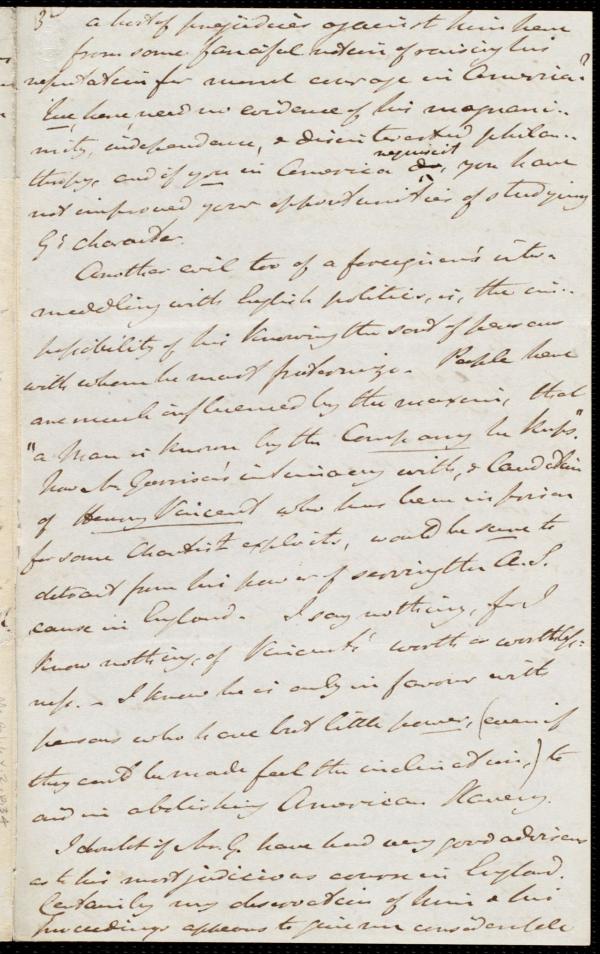 3
a host of prejudices against him here
from some fanciful notion of raising his
reputation for moral courage in America?
We, here, need no evidence of his magnani-
mity, independence, & disinterested philan-
thropy, and if you in America require it do, you have
not improved your opportunities of studying
G's character.
Another evil too of a foreigner's inter-
meddling with English politics, is, the im-
possibility of his knowing the sort of persons
with whom he must fraternize. People here
are much influenced by the maxim, that
"a man is known by the Company he keeps".
Now Mr Garrison's intimacy with, & laudation
of Henry Vincent who has been in prison
for some Chartist exploits, would be sure to
detract from his power of serving the A.S.
cause in England. I say nothing, for I
know nothing, of Vincent's worth or worthless-
ness. - I know he is only in favour with
persons who have but little power, (even if
they could be made feel the inclination,) to
aid in abolishing American Slavery.
I doubt if Mr. G. have had very good advisers
as to his most judicious course in England.
Certainly my observation of him & his
proceedings appears to give me considerable